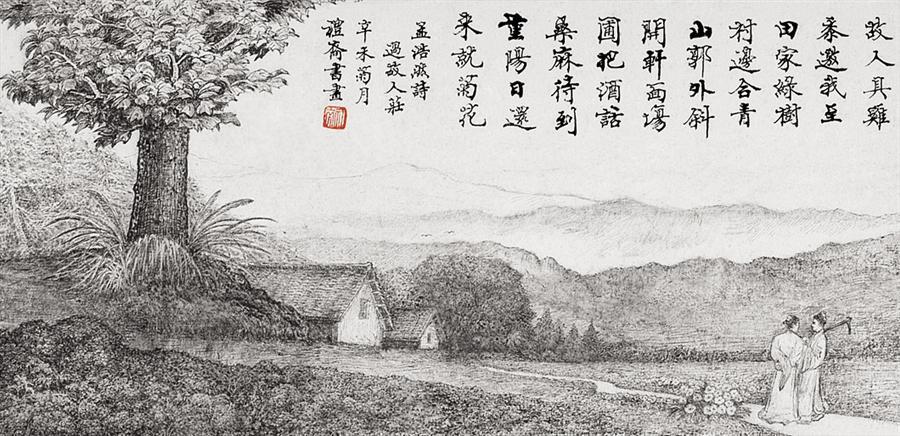 故人具雞
黍邀我至
田家綠樹
村邊合青
山郭外斜
開軒面場
圃把酒話
桑麻待到
重陽日還
来就菊花
孟浩然詩
過故人莊
辛未菊月
禮斋書畫